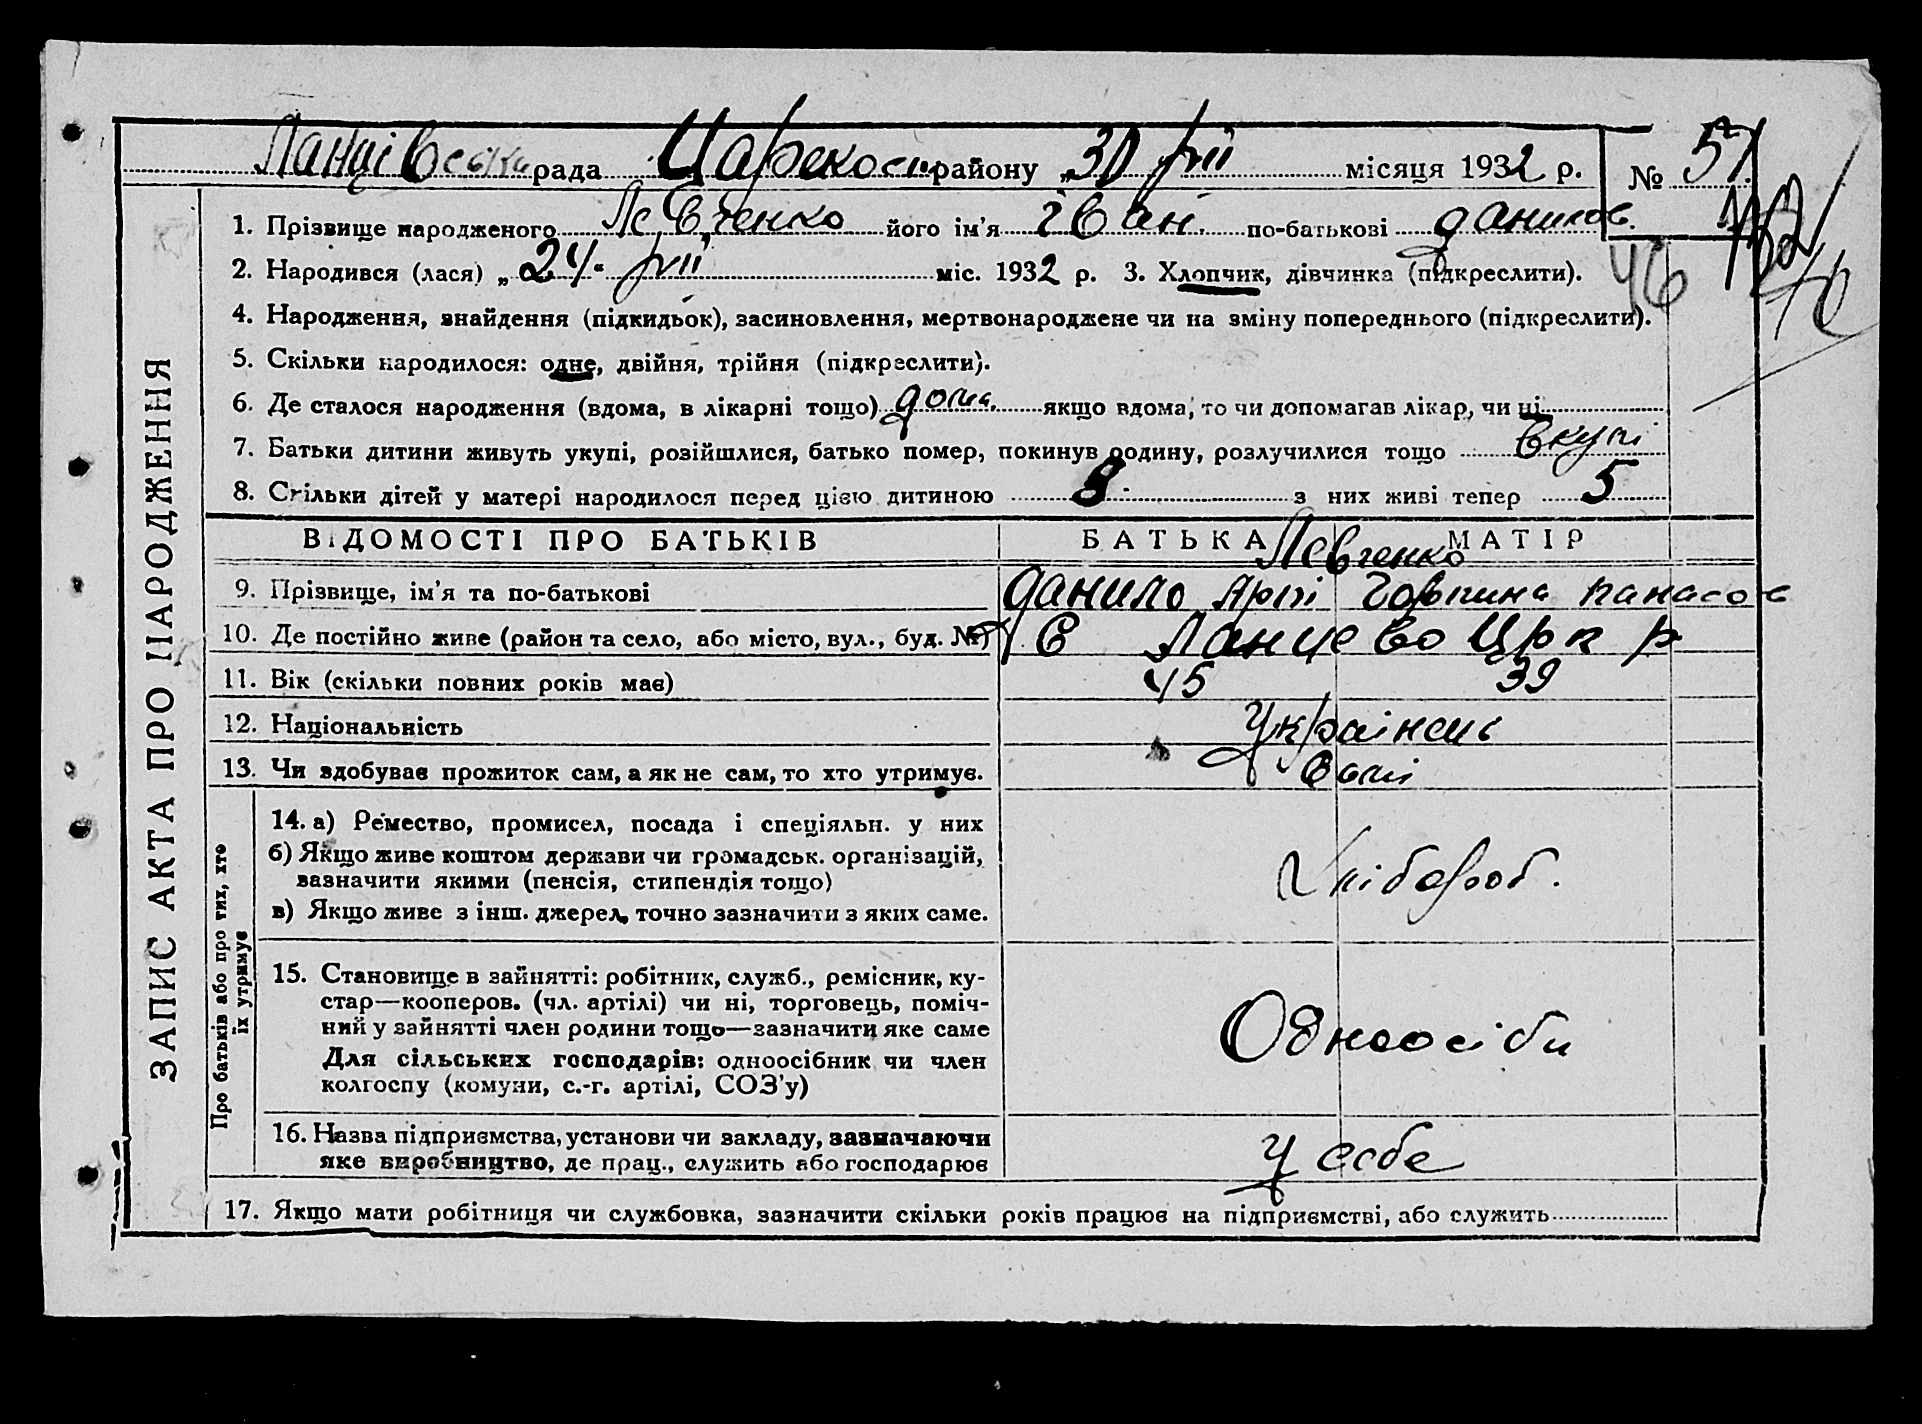 Ланцівська рада Царекост. району „30 VII місяця 1932 р. № 51
1. Прізвище народженого Левченко його ім'я іван. по-батькові данилов.
2. Народився (лася) „24" VII міс. 1932 р. 3. Хлопчик, дівчинка (підкреслити).
46
4. Народження, знайдення (підкидьок), засиновлення, мертвонароджене чи на зміну попереднього (підкреслити).
5. Скільки народилося: одне, двійня, трійня (підкреслити).
6. Де сталося народження (вдома, в лікарні тощо) дома. якщо вдома, то чи допомагав лікар, чи ні
7. Батьки дитини живуть укупі, розійшлися, батько помер, покинув родину, розлучилися тощо Вкупі
8. Скільки дітей у матері народилося перед цією дитиною 8 з них живі тепер 5
ЗАПИС АКТА ПРО НАРОДЖЕННЯ
ВІДОМОСТІ ПРО БАТЬКІВ БАТЬКА МАТІР
Левченко
9. Прізвище, ім'я та по-батькові данило Арті Горпина панасов
10. Де постійно живе (район та село, або місто, вул., буд. №) С Ланцево Црк р
11. Вік (скільки повних років має) 45 39
12. Національність Українець
13. Чи здобуває прожиток сам, а як не сам, то хто утримує. Самі
Про батьків або про тих, хто
їх утримує
14. а) Ремество, промисел, посада і спеціяльн. у них
б) Якщо живе коштом держави чи громадськ. організацій,
зазначити якими (пенсія, стипендія тощо)
хлібороб.
в) Якщо живе з інш. джерел, точно зазначити з яких саме.
15. Становище в зайнятті: робітник, служб., ремісник, ку-
стар—кооперов. (чл. артілі) чи ні, торговець, поміч-
ний у зайнятті член родини тощо—зазначити яке саме
Одноосіби
Для сільських господарів: одноосібник чи член
колгоспу (комуни, с.-г. артілі, СОЗ'у)
16. Назва підприємства, установи чи закладу, зазначаючи
яке виробництво, де прац., служить або господарює
У себе
17. Якщо мати робітниця чи службовка, зазначити скільки років працює на підприємстві, або служить